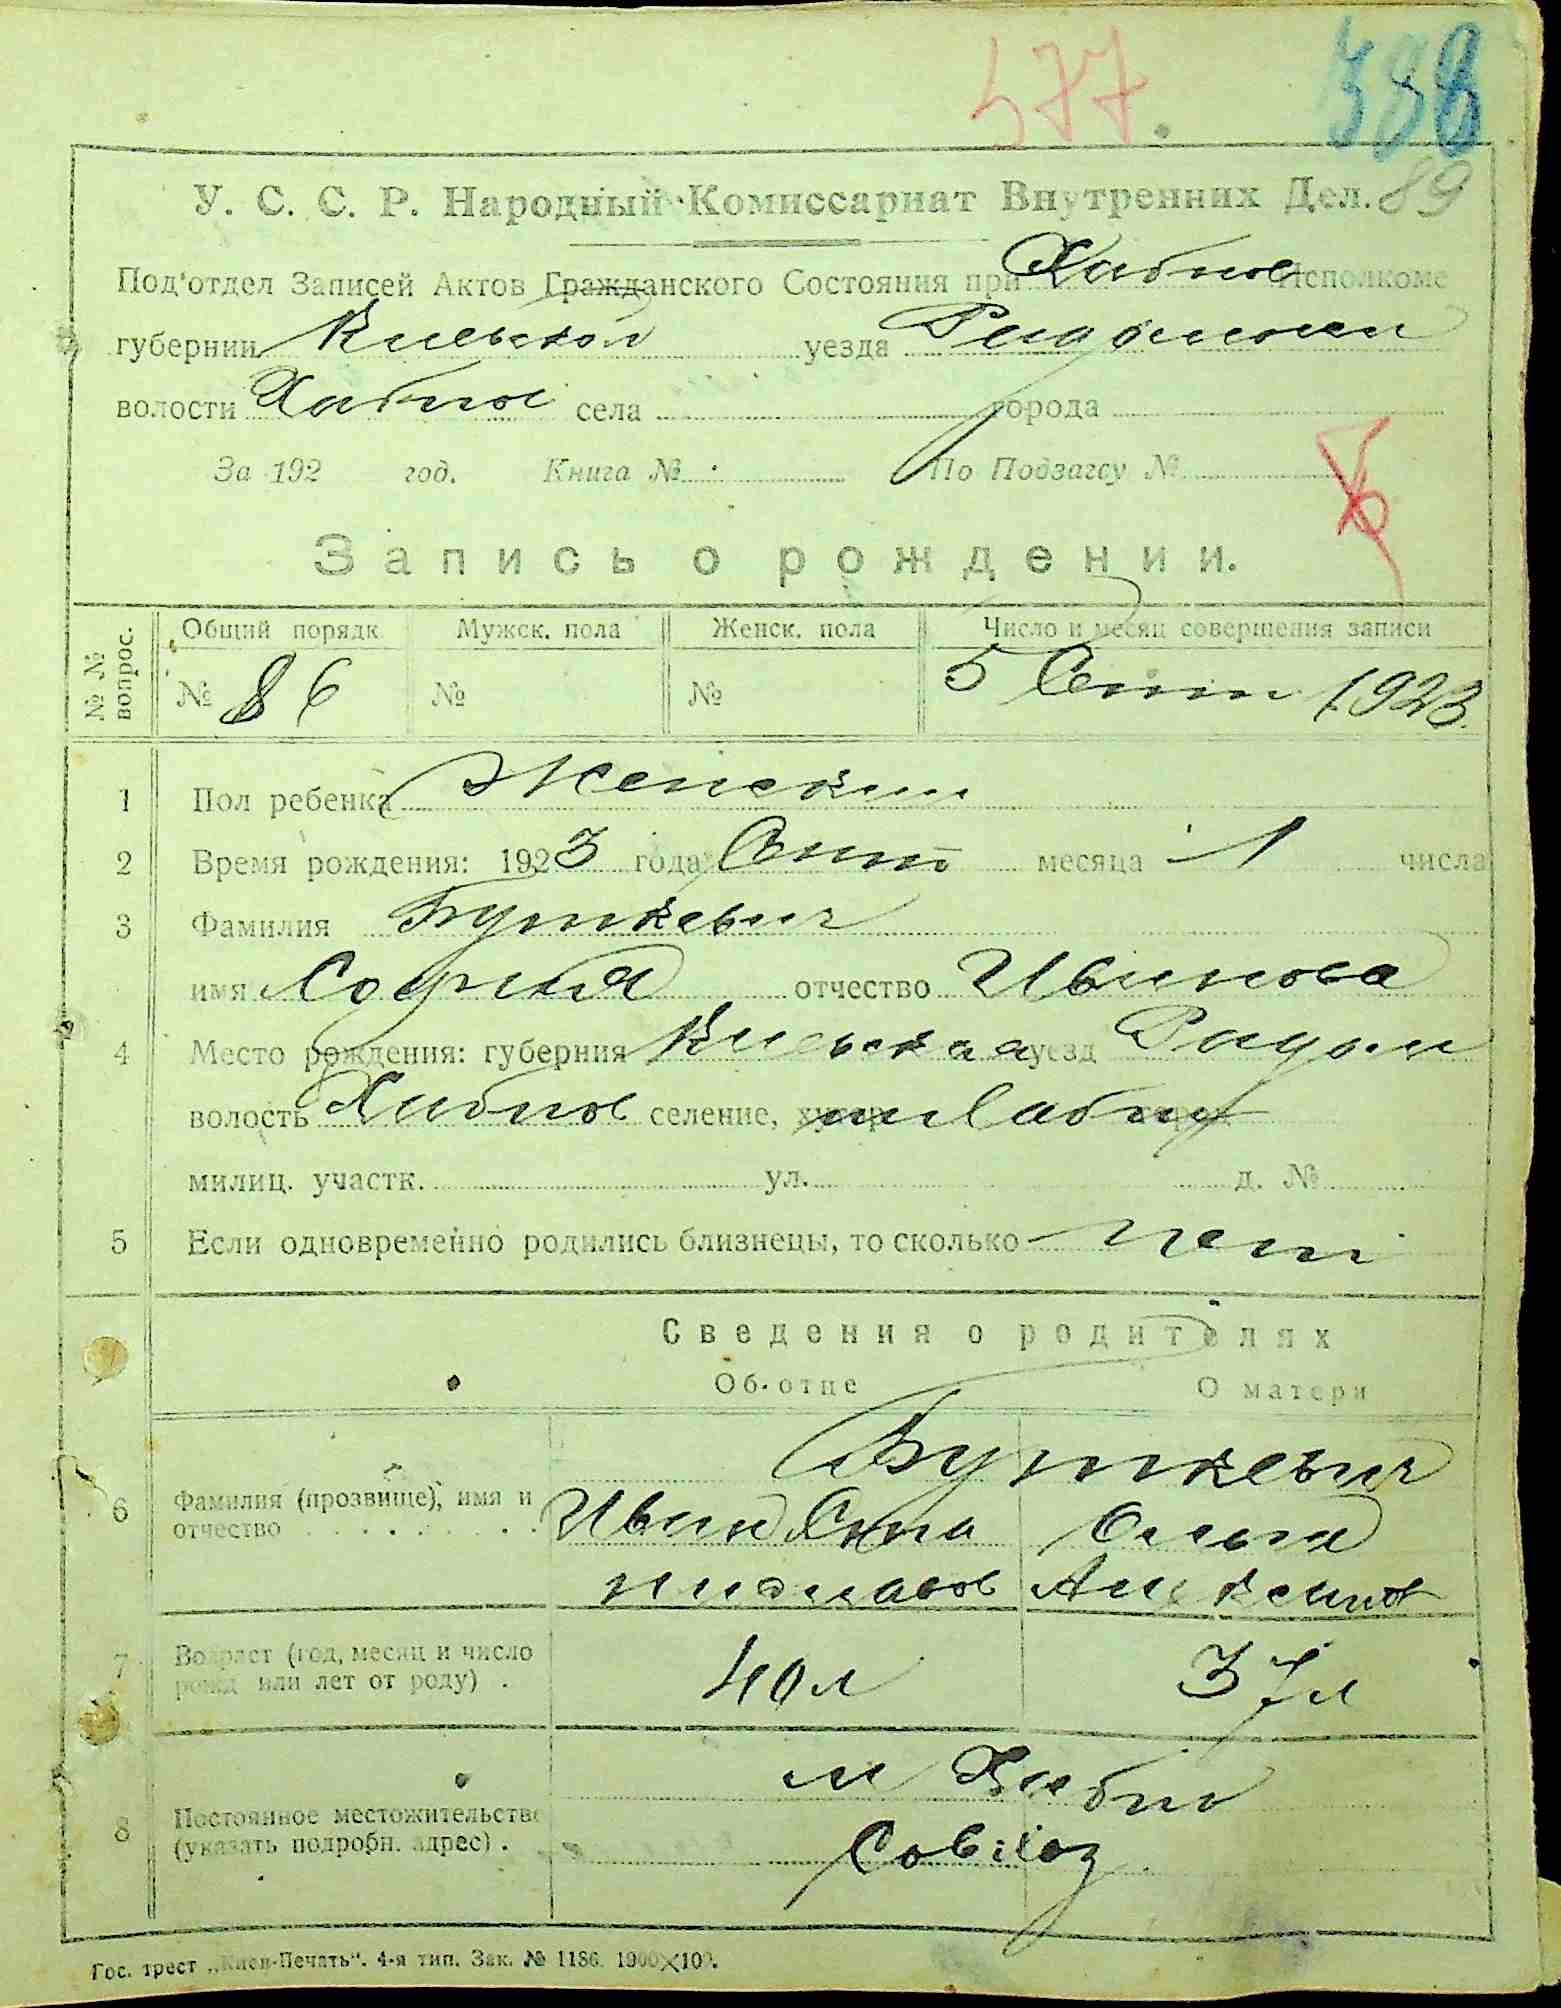 577.
89
У. С. С. Р. Народный Комиссариат Внутренних Дел.
Под'отдел Записей Актов Гражданского Состояния при Хабное Исполкоме
губернии Киевской уезда
волости Хабное села города
За 192 год. Книга № По Подзагсу №
Запись о рождении.
№№ вопрос. Общий порядк Мужск. пола Женск. пола Число и месяц совершения записи
№ 86 № № 5 Сент 1923.
1 Пол ребенка Женский
2 Время рождения: 1923 года Сент месяца 1 числа
3 Фамилия Буткевич
имя София отчество Иванова
4 Место рождения: губерния Киевская уезд Радом
волость Хабное селение,
милиц. участк. ул. д. №
5 Если одновременно родились близнецы, то сколько нет
Сведения о родителях
Об отце О матери
Буткевич
6 Фамилия (прозвище), имя и Иван Ста Ольга
отчество ниславов Алексеев
7 Возраст (год, месяц и число 40 л 37 л
рожд или лет от роду) .
м Хабно
8 Постоянное местожительство
(указать подробн. адрес) . Совхоз
Гос. трест „Киев-Печать“. 4-я тип. Зак. № 1186. 1900×100.